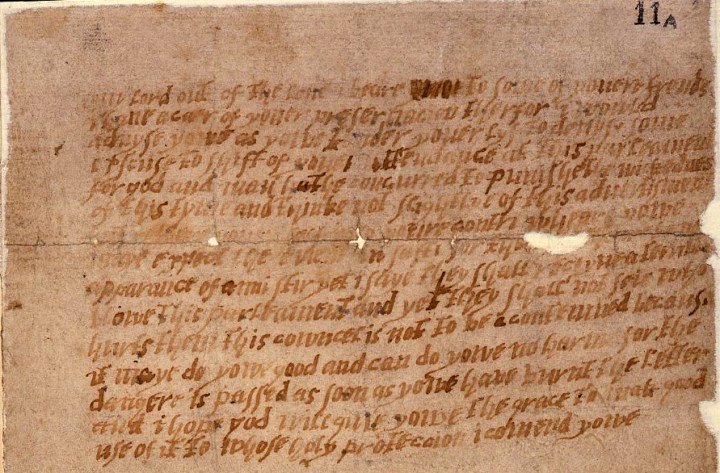 11A
lord out of the love i beare to some of youere frends
i have a caer of youer preservacion therfor i would
advyse yowe as yowe tender youer lyf to devyse some
exscuse to shift of youer attendance at this parleament
for god and man hathe concurred to punishe the wickednes
of this tyme and thinke not slightlye of this advertisment
contri wheare yowe
maye expect the event in safti for
apparance of anni stir yet i saye they shall receyve a terribel
blowe this parleament and yet they shall not seie who
hurts them this cowncel is not to be acontemned because
it maye do yowe good and can do yowe no harme for the
dangere is passed as soon as yowe have burnt the letter
and i hope god will give yowe the grace to mak good
use of it to whose holy proteccion i comend yowe